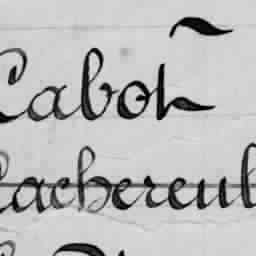 Cabot
Lachereul